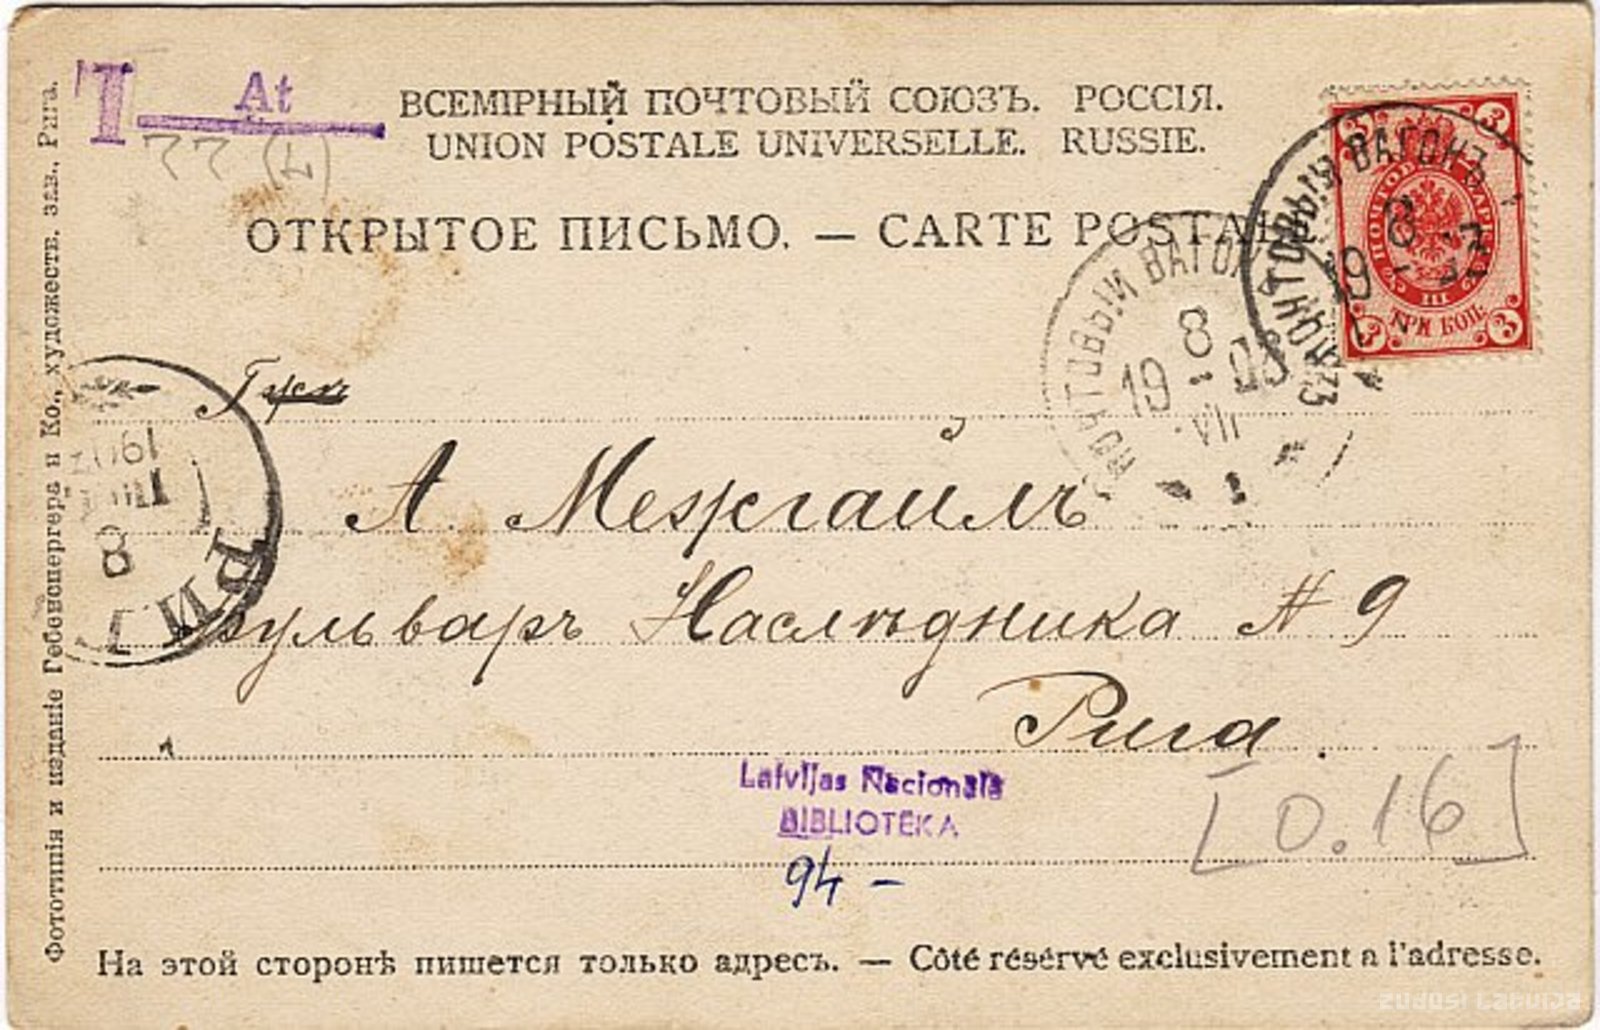 At
T
22 (4)
ВСЕМІРНЫЙ ПОЧТОВЫЙ СОЮЗЪ. РОССІЯ.
UNION POSTALE UNIVERSELLE. RUSSIE.
ОТКРЫТОЕ ПИСЬМО. — CARTE POSTALE
ПОЧТОВЫЙ ВАГОНЪ
8
19
ТРИ КОП.
3
3
3
ПОЧТОВЫЙ ВАГОН
8
19 - 03
VII
1
РИГ
8
VII
А. Межгаиль
Бульваръ Наслѣдника № 9
Рига
Latvijas Nacionālā
BIBLIOTĒKA
94 –
[0.16]
На этой сторонѣ пишется только адресъ. — Côté réservé exclusivement a l'adresse.
Фототипія и изданіе Гебенспергера и Ко., художеств. зав., Рига.
zudusi Latvija